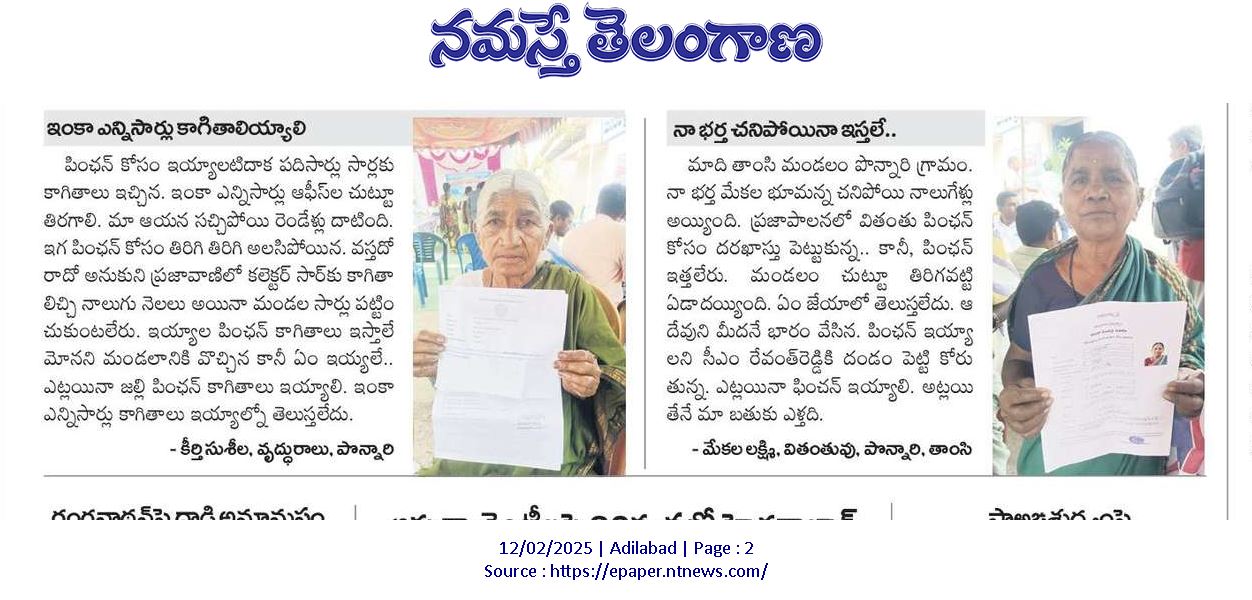 నమస్తే తెలంగాణ
ఇంకా ఎన్నిసార్లు కాగితాలియ్యాలి
పింఛన్ కోసం ఇయ్యాలటిదాక పదిసార్లు సార్లకు
కాగితాలు ఇచ్చిన. ఇంకా ఎన్నిసార్లు ఆఫీస్ల చుట్టూ
తిరగాలి. మా ఆయన సచ్చిపోయి రెండేళ్లు దాటింది.
ఇగ పింఛన్ కోసం తిరిగి తిరిగి అలసిపోయిన. వస్తదో
రాదో అనుకుని ప్రజావాణిలో కలెక్టర్ సార్‌కు కాగితా
లిచ్చి నాలుగు నెలలు అయినా మండల సార్లు పట్టిం
చుకుంటలేరు. ఇయ్యాల పింఛన్ కాగితాలు ఇస్తాలే
మోనని మండలానికి వొచ్చిన కానీ ఏం ఇయ్యలే..
ఎట్లయినా జల్లి పింఛన్ కాగితాలు ఇయ్యాలి. ఇంకా
ఎన్నిసార్లు కాగితాలు ఇయ్యాల్నో తెలుస్తలేదు.
- కీర్తి సుశీల, వృద్ధురాలు, పొన్నారి
నా భర్త చనిపోయినా ఇస్తలే..
మాది తాంసి మండలం పొన్నారి గ్రామం.
నా భర్త మేకల భూమన్న చనిపోయి నాలుగేళ్లు
అయ్యింది. ప్రజాపాలనలో వితంతు పింఛన్
కోసం దరఖాస్తు పెట్టుకున్న.. కానీ, పింఛన్
ఇత్తలేరు. మండలం చుట్టూ తిరిగవట్టి
ఏడాదయ్యింది. ఏం జేయాలో తెలుస్తలేదు. ఆ
దేవుని మీదనే భారం వేసిన. పింఛన్ ఇయ్యా
లని సీఎం రేవంత్‌రెడ్డికి దండం పెట్టి కోరు
తున్న. ఎట్లయినా ఫించన్ ఇయ్యాలి. అట్లయి
తేనే మా బతుకు ఎళ్తది.
- మేకల లక్ష్మి, వితంతువు, పొన్నారి, తాంసి
12/02/2025 | Adilabad | Page : 2
Source : https://epaper.ntnews.com/